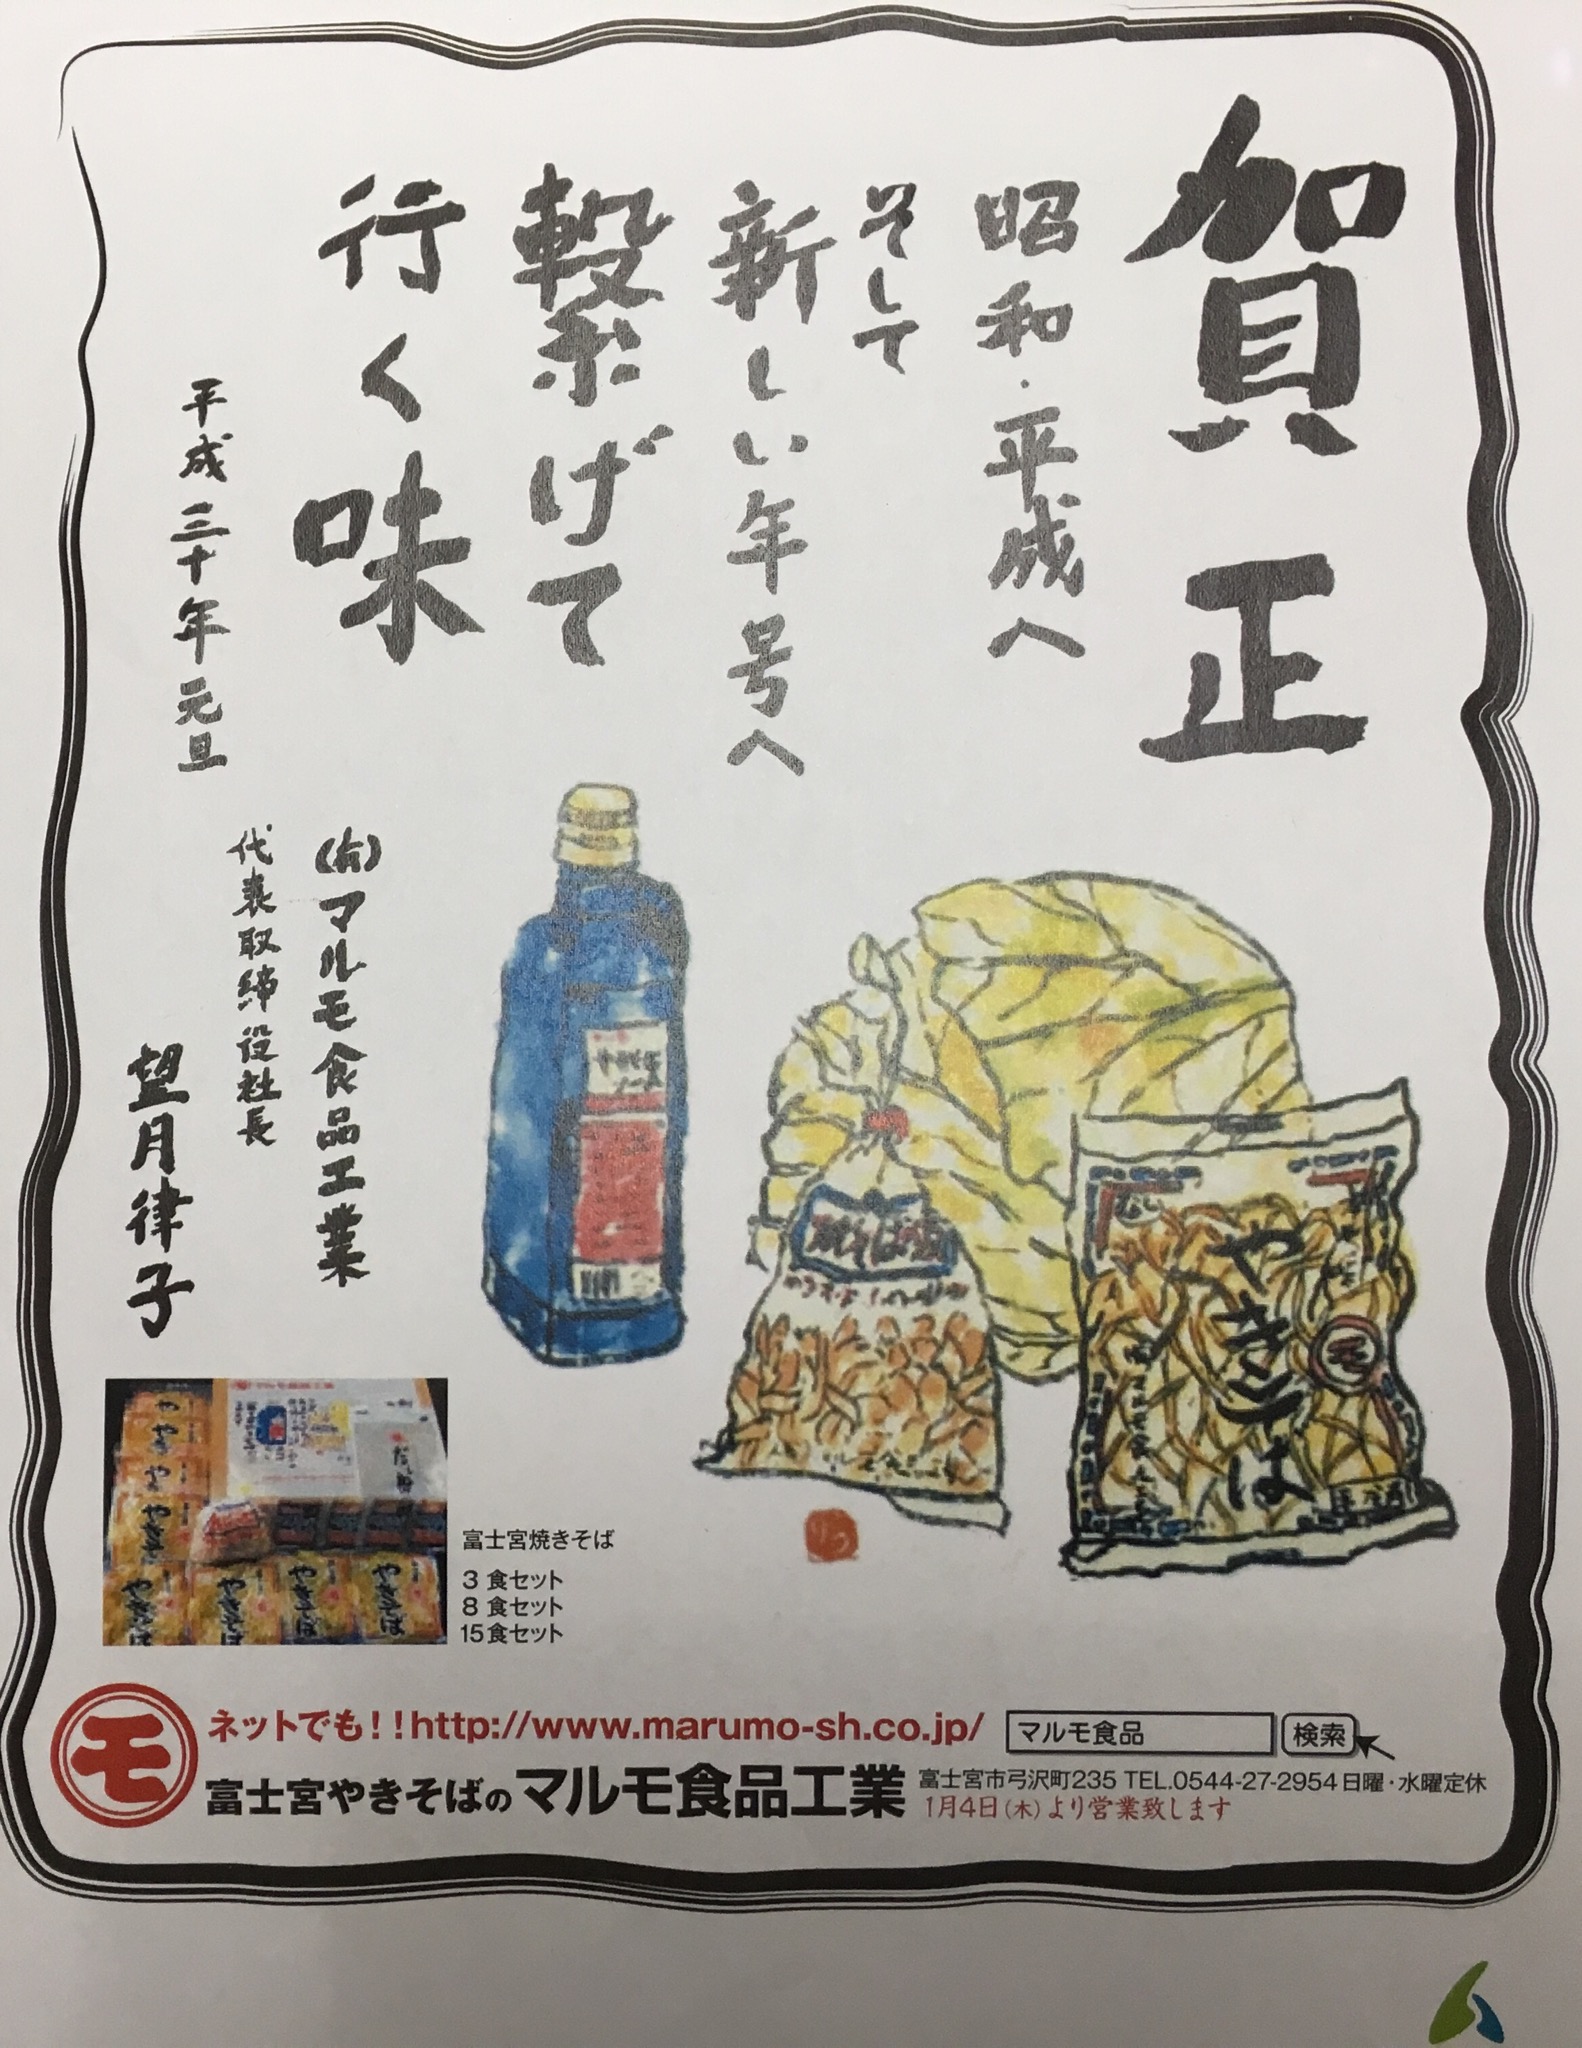 賀正
昭和・平成へ
そして
新しい年号へ
繋げて
行く味
平成三十年元旦
(有)マルモ食品工業
代表取締役社長
望月律子
やきそば
モ
富士宮焼きそば
3食セット
8食セット
15食セット
モ
ネットでも!!http://www.marumo-sh.co.jp/
マルモ食品
検索
富士宮やきそばのマルモ食品工業
富士宮市弓沢町235 TEL.0544-27-2954 日曜・水曜定休
1月4日(木)より営業致します